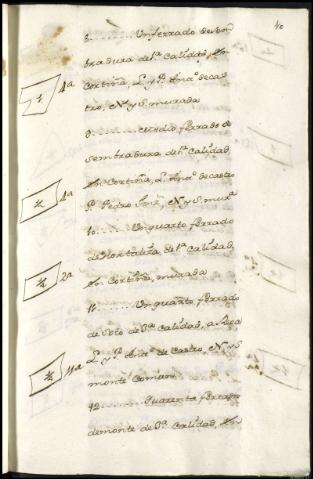 40
8........ Un ferrado de sem
bradura de 1ª calidad, en
Cortiña, L. y P. Anaº de cas
tro, N. y S. murada
1 4ª
9........ medio ferrado de
sembradura de 1ª calidad,
en Cortiña, L. Anaº de castro
P. Pedro N. y S. murª
½ 4ª
10....... Un quarto ferrado
de ortaliza de 1ª calidad,
en Cortiña, murada
¼ 2ª
11....... Un quarto ferrado
de soto de 3ª calidad, a
L. y P. Anaº de Castro, N. y S
monte comun
¼ 4ª
12....... Quarenta ferrados
de monte de 3ª calidad, en